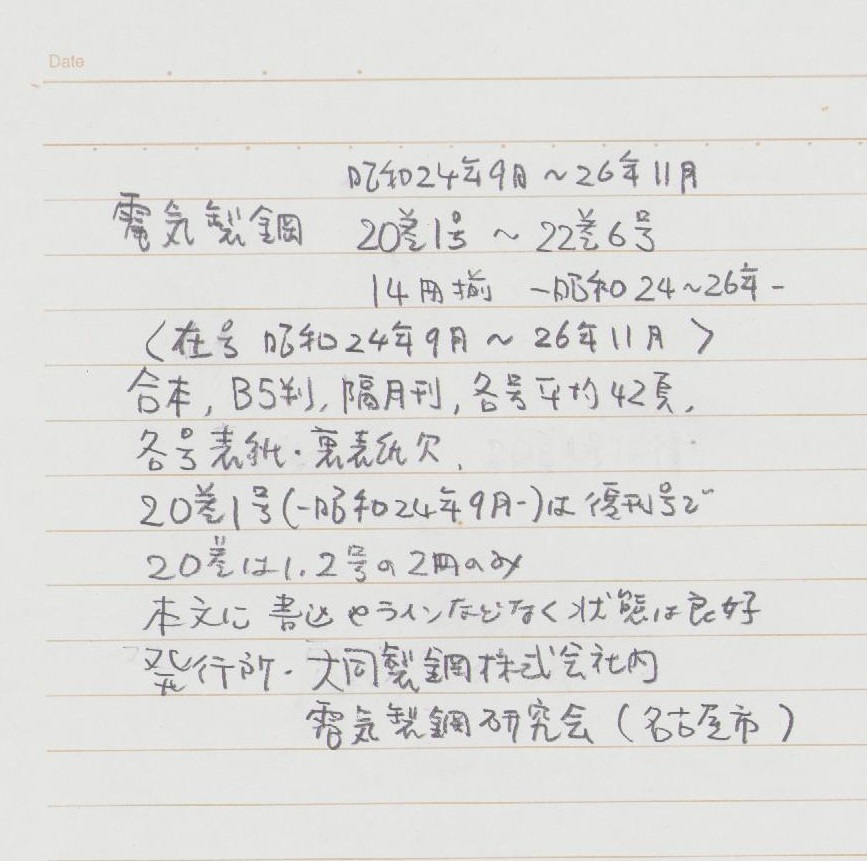 Date
昭和24年9月～26年11月
電気製鋼 20巻1号～22巻6号
14冊揃 -昭和24～26年-
〈在号 昭和24年9月～26年11月〉
合本，B5判，隔月刊，各号平均42頁，
各号表紙・裏表紙欠，
20巻1号(-昭和24年9月-)は復刊号で
20巻は1.2号の2冊のみ
本文に書込やラインなどなく状態は良好
発行所・大同製鋼株式会社内
電気製鋼研究会（名古屋市）